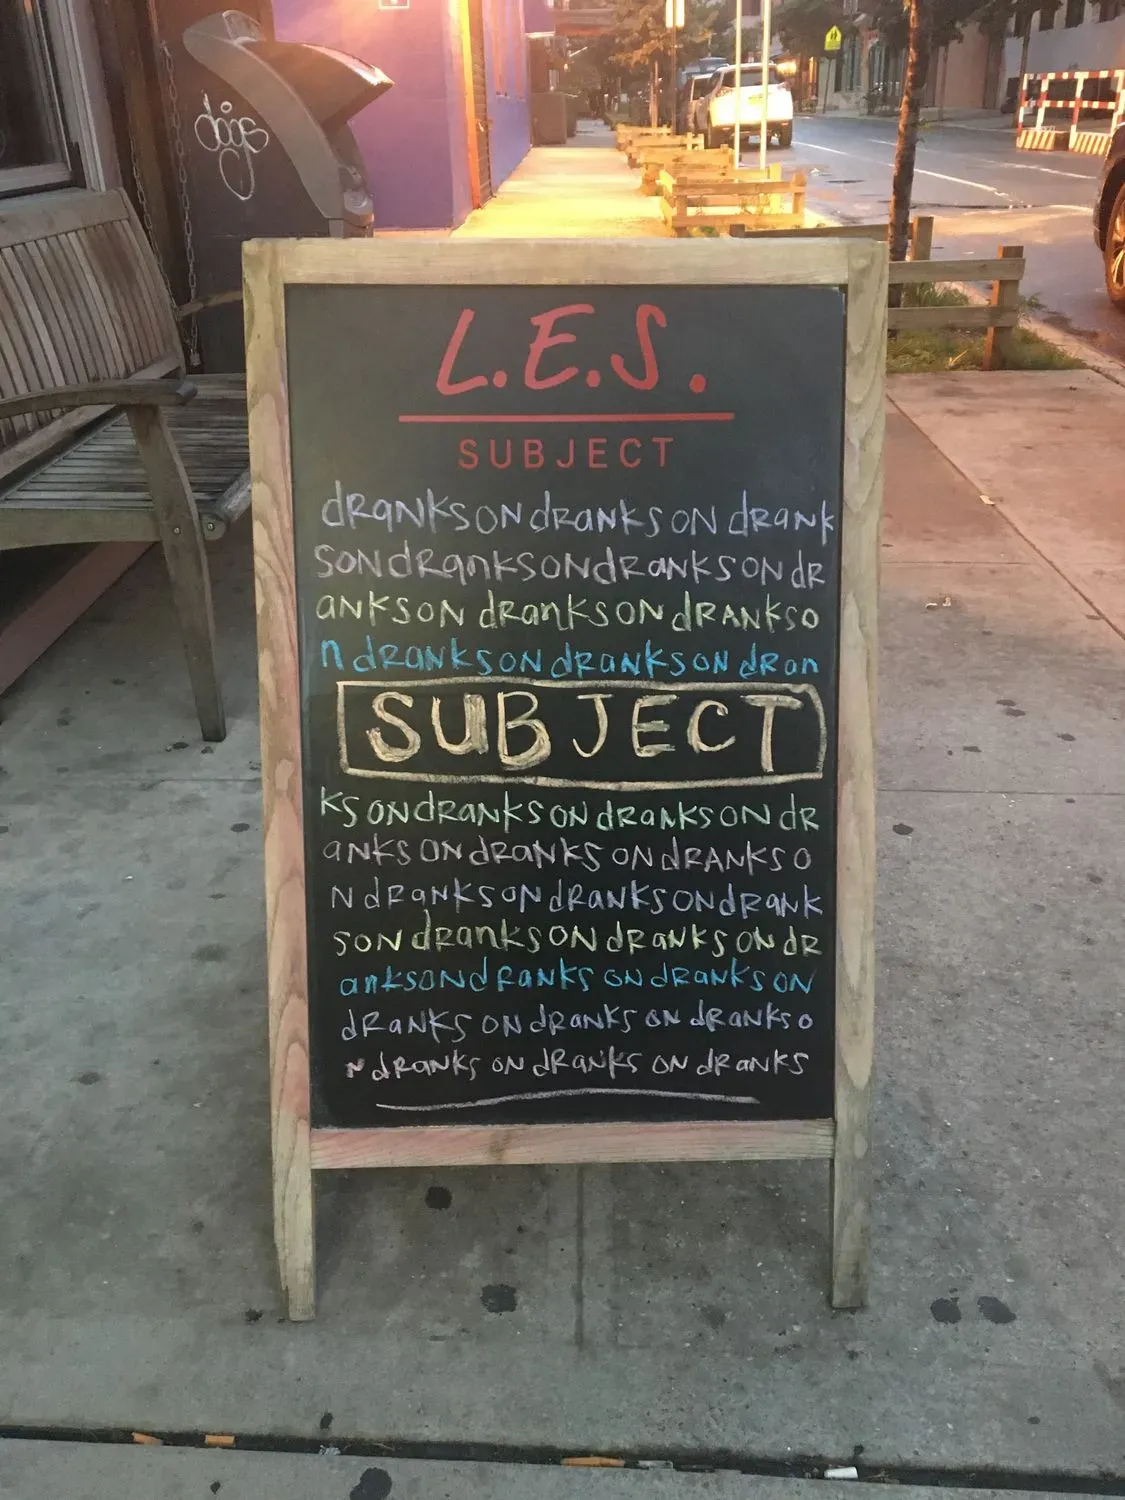 L.E.S.
SUBJECT
dRanksONdRanksONdRank
SONdRanksONdRanksONdR
anksON dRanksON dRANKSO
n dRanksONdRanksON dRan
SUBJECT
ksONdRanksONdRanksONdR
anksONdRanksONdRANKSO
NdRanksONdRanksONdRank
SONdRanksONdRanksONdR
anksONdRanksONdRanksON
dRanks ON dRanks ON dRanksO
NdRanks ON dRanks ON dRanks